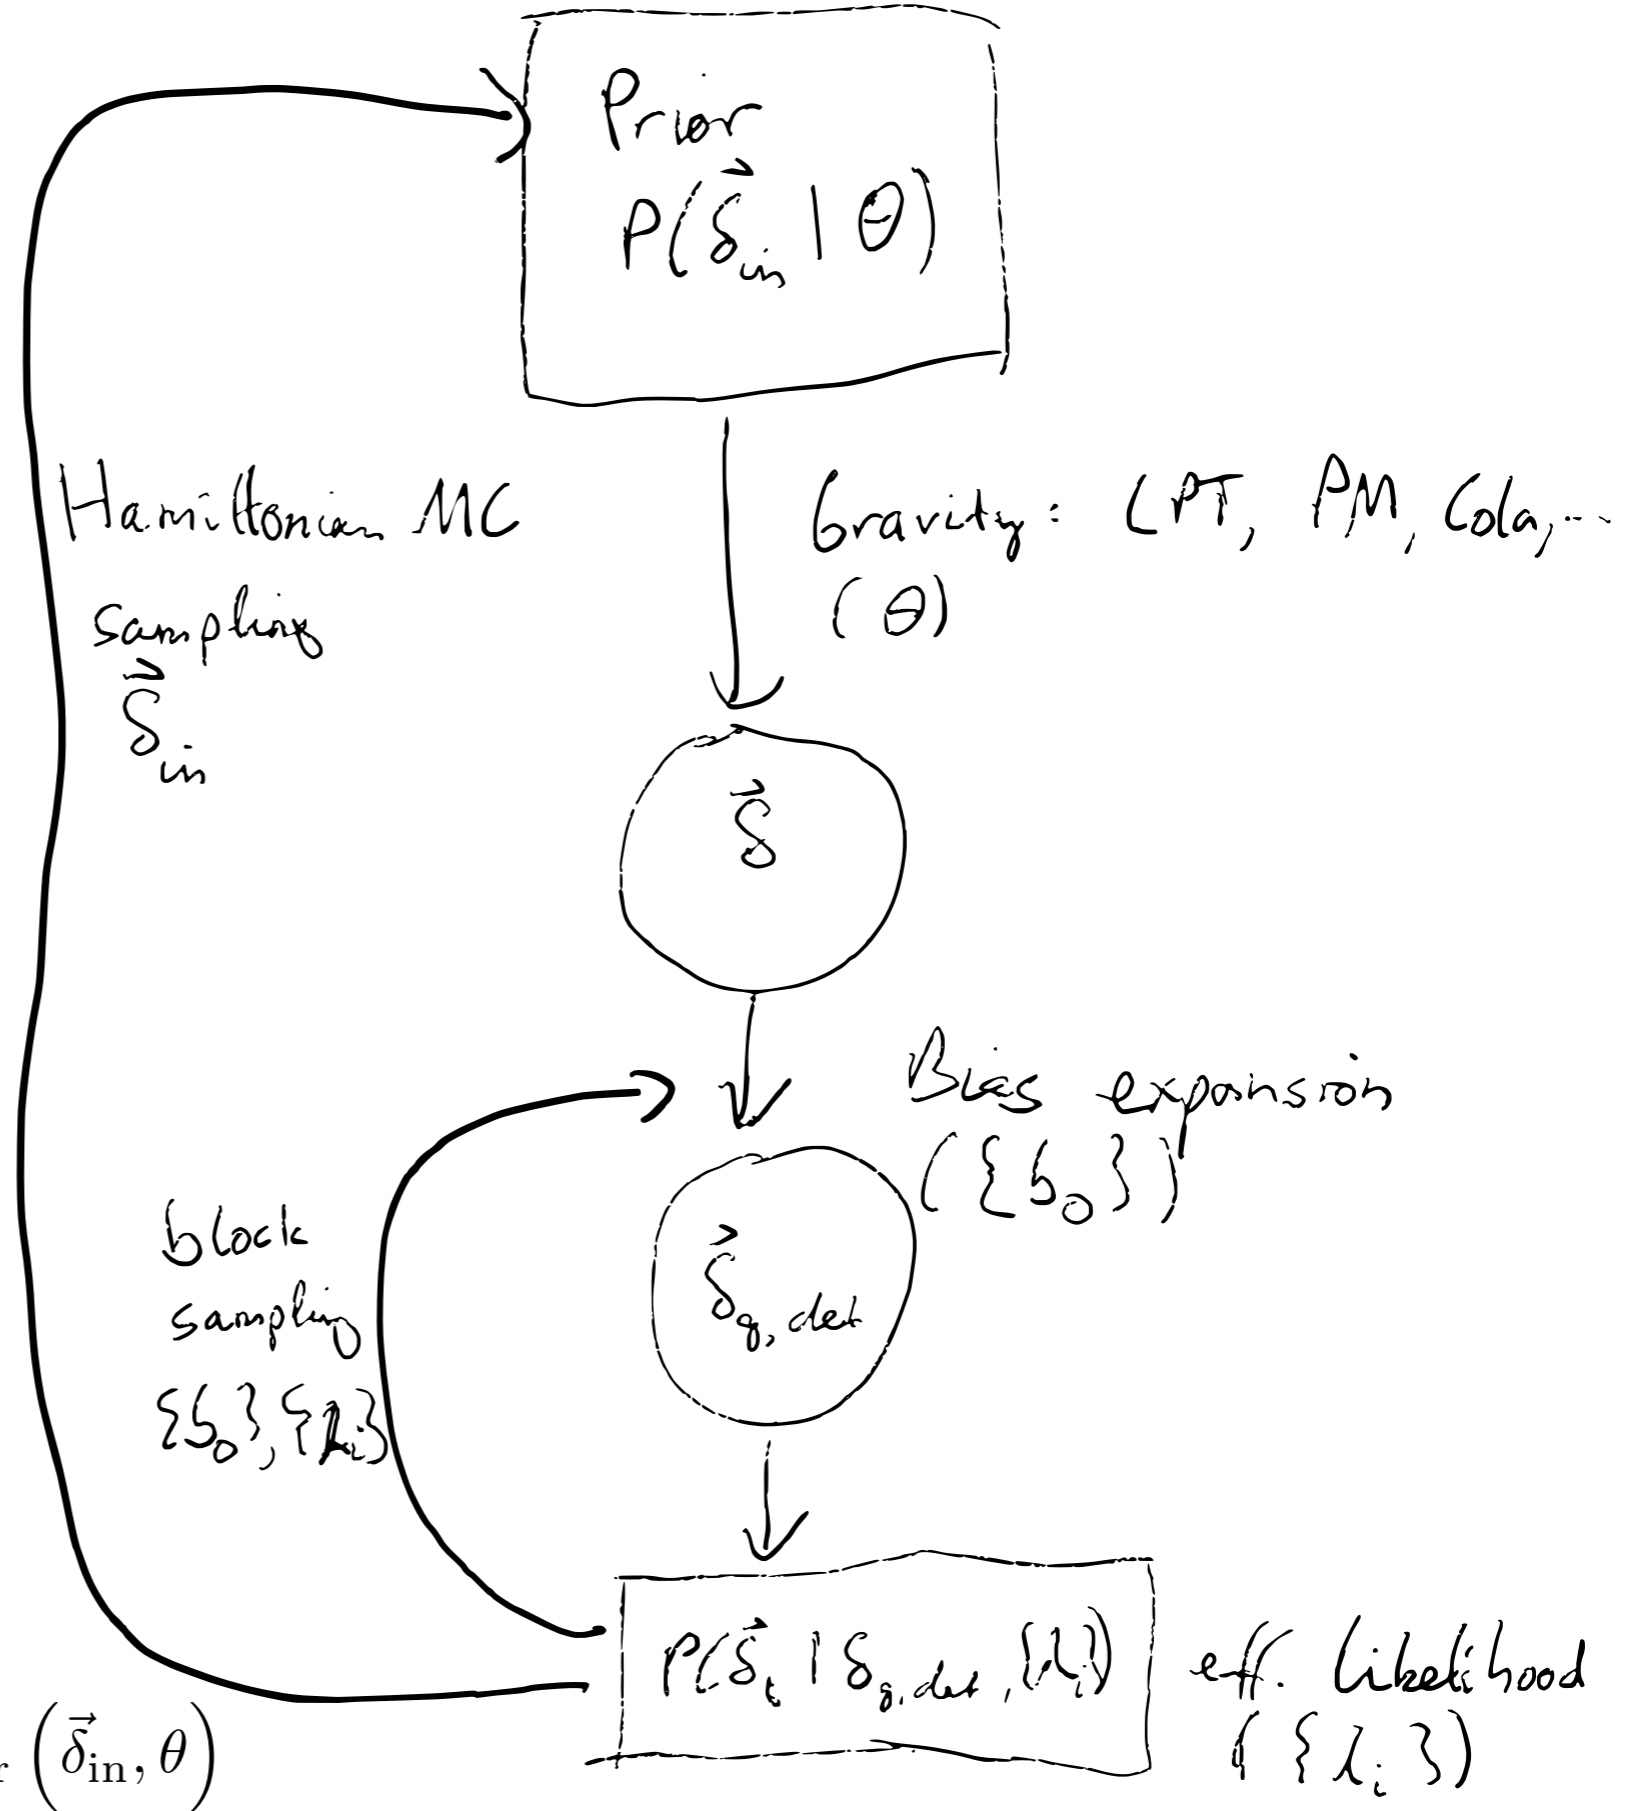 Prior
P(δ⃗_in | θ)
Hamiltonian MC
sampling
δ⃗_in
Gravity: LPT, PM, Cola,...
(θ)
δ⃗
Bias expansion
({b_O})
δ⃗_g,det
block
sampling
{b_O}, {λ_i}
P(δ⃗_t | δ_g,det, {λ_i})
eff. likelihood
({λ_i})
r (δ⃗_in, θ)